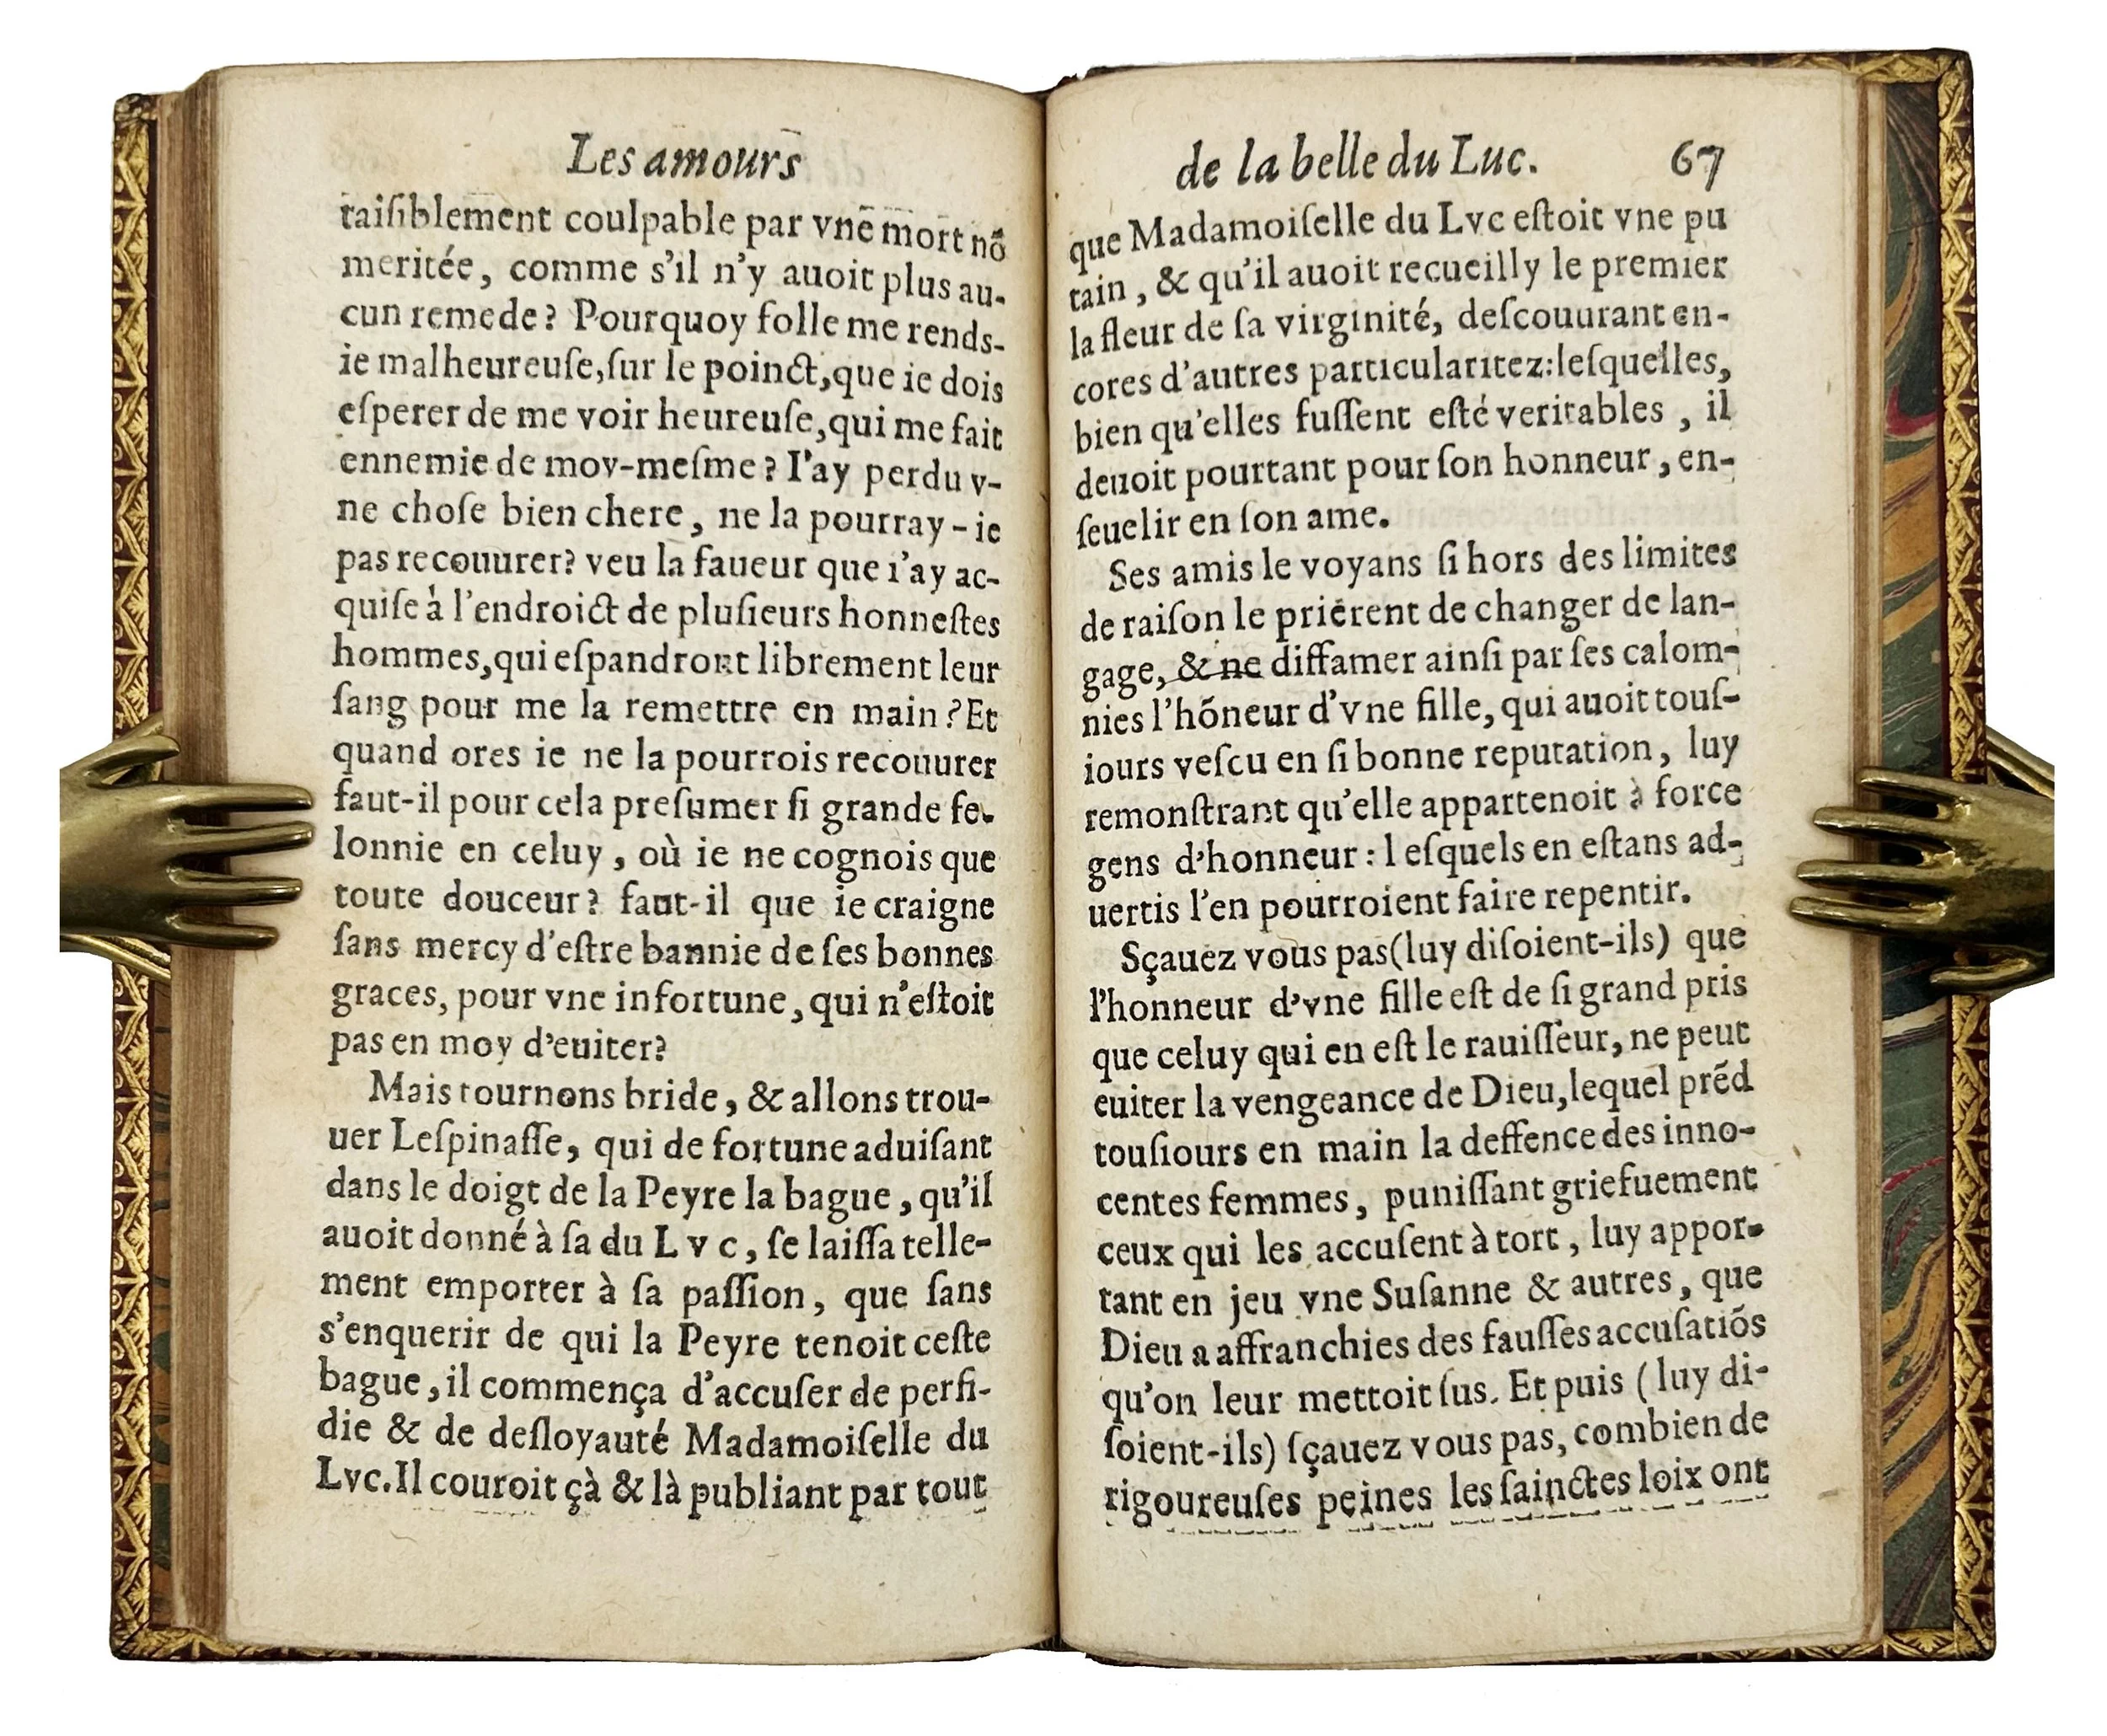 Les amours
taiſiblement coulpable par vne mort nõ
meritée, comme s'il n'y auoit plus au-
cun remede? Pourquoy folle me rends-
ie malheureuſe, ſur le poinct, que ie dois
eſperer de me voir heureuſe, qui me fait
ennemie de moy-meſme? I'ay perdu v-
ne choſe bien chere, ne la pourray-ie
pas recouurer? veu la faueur que i'ay ac-
quiſe à l'endroict de pluſieurs honneſtes
hommes, qui eſpandront librement leur
ſang pour me la remettre en main? Et
quand ores ie ne la pourrois recouurer
faut-il pour cela preſumer ſi grande fe-
lonnie en celuy, où ie ne cognois que
toute douceur? faut-il que ie craigne
ſans mercy d'eſtre bannie de ſes bonnes
graces, pour vne infortune, qui n'eſtoit
pas en moy d'euiter?
Mais tournons bride, & allons trou-
uer Leſpinaſſe, qui de fortune aduiſant
dans le doigt de la Peyre la bague, qu'il
auoit donné à ſa du Lvc, ſe laiſſa telle-
ment emporter à ſa paſſion, que ſans
s'enquerir de qui la Peyre tenoit ceſte
bague, il commença d'accuſer de perfi-
die & de deſloyauté Madamoiſelle du
Lvc. Il couroit çà & là publiant par tout
de la belle du Luc. 67
que Madamoiſelle du Lvc eſtoit vne pu
tain, & qu'il auoit recueilly le premier
la fleur de ſa virginité, deſcouurant en-
cores d'autres particularitez: leſquelles,
bien qu'elles fuſſent eſté veritables, il
deuoit pourtant pour ſon honneur, en-
ſeuelir en ſon ame.
Ses amis le voyans ſi hors des limites
de raiſon le priérent de changer de lan-
gage, & ne diffamer ainſi par ſes calom-
nies l'hõneur d'vne fille, qui auoit touſ-
iours veſcu en ſi bonne reputation, luy
remonſtrant qu'elle appartenoit à force
gens d'honneur: leſquels en eſtans ad-
uertis l'en pourroient faire repentir.
Sçauez vous pas (luy diſoient-ils) que
l'honneur d'vne fille eſt de ſi grand pris
que celuy qui en eſt le rauiſſeur, ne peut
euiter la vengeance de Dieu, lequel prẽd
touſiours en main la deffence des inno-
centes femmes, puniſſant griefuement
ceux qui les accuſent à tort, luy appor-
tant en jeu vne Suſanne & autres, que
Dieu a affranchies des fauſſes accuſatiõs
qu'on leur mettoit ſus. Et puis (luy di-
ſoient-ils) ſçauez vous pas, combien de
rigoureuſes peines les ſainctes loix ont